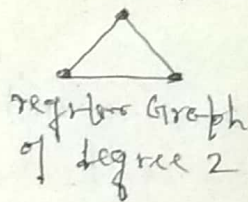 regular Graph
of degree 2